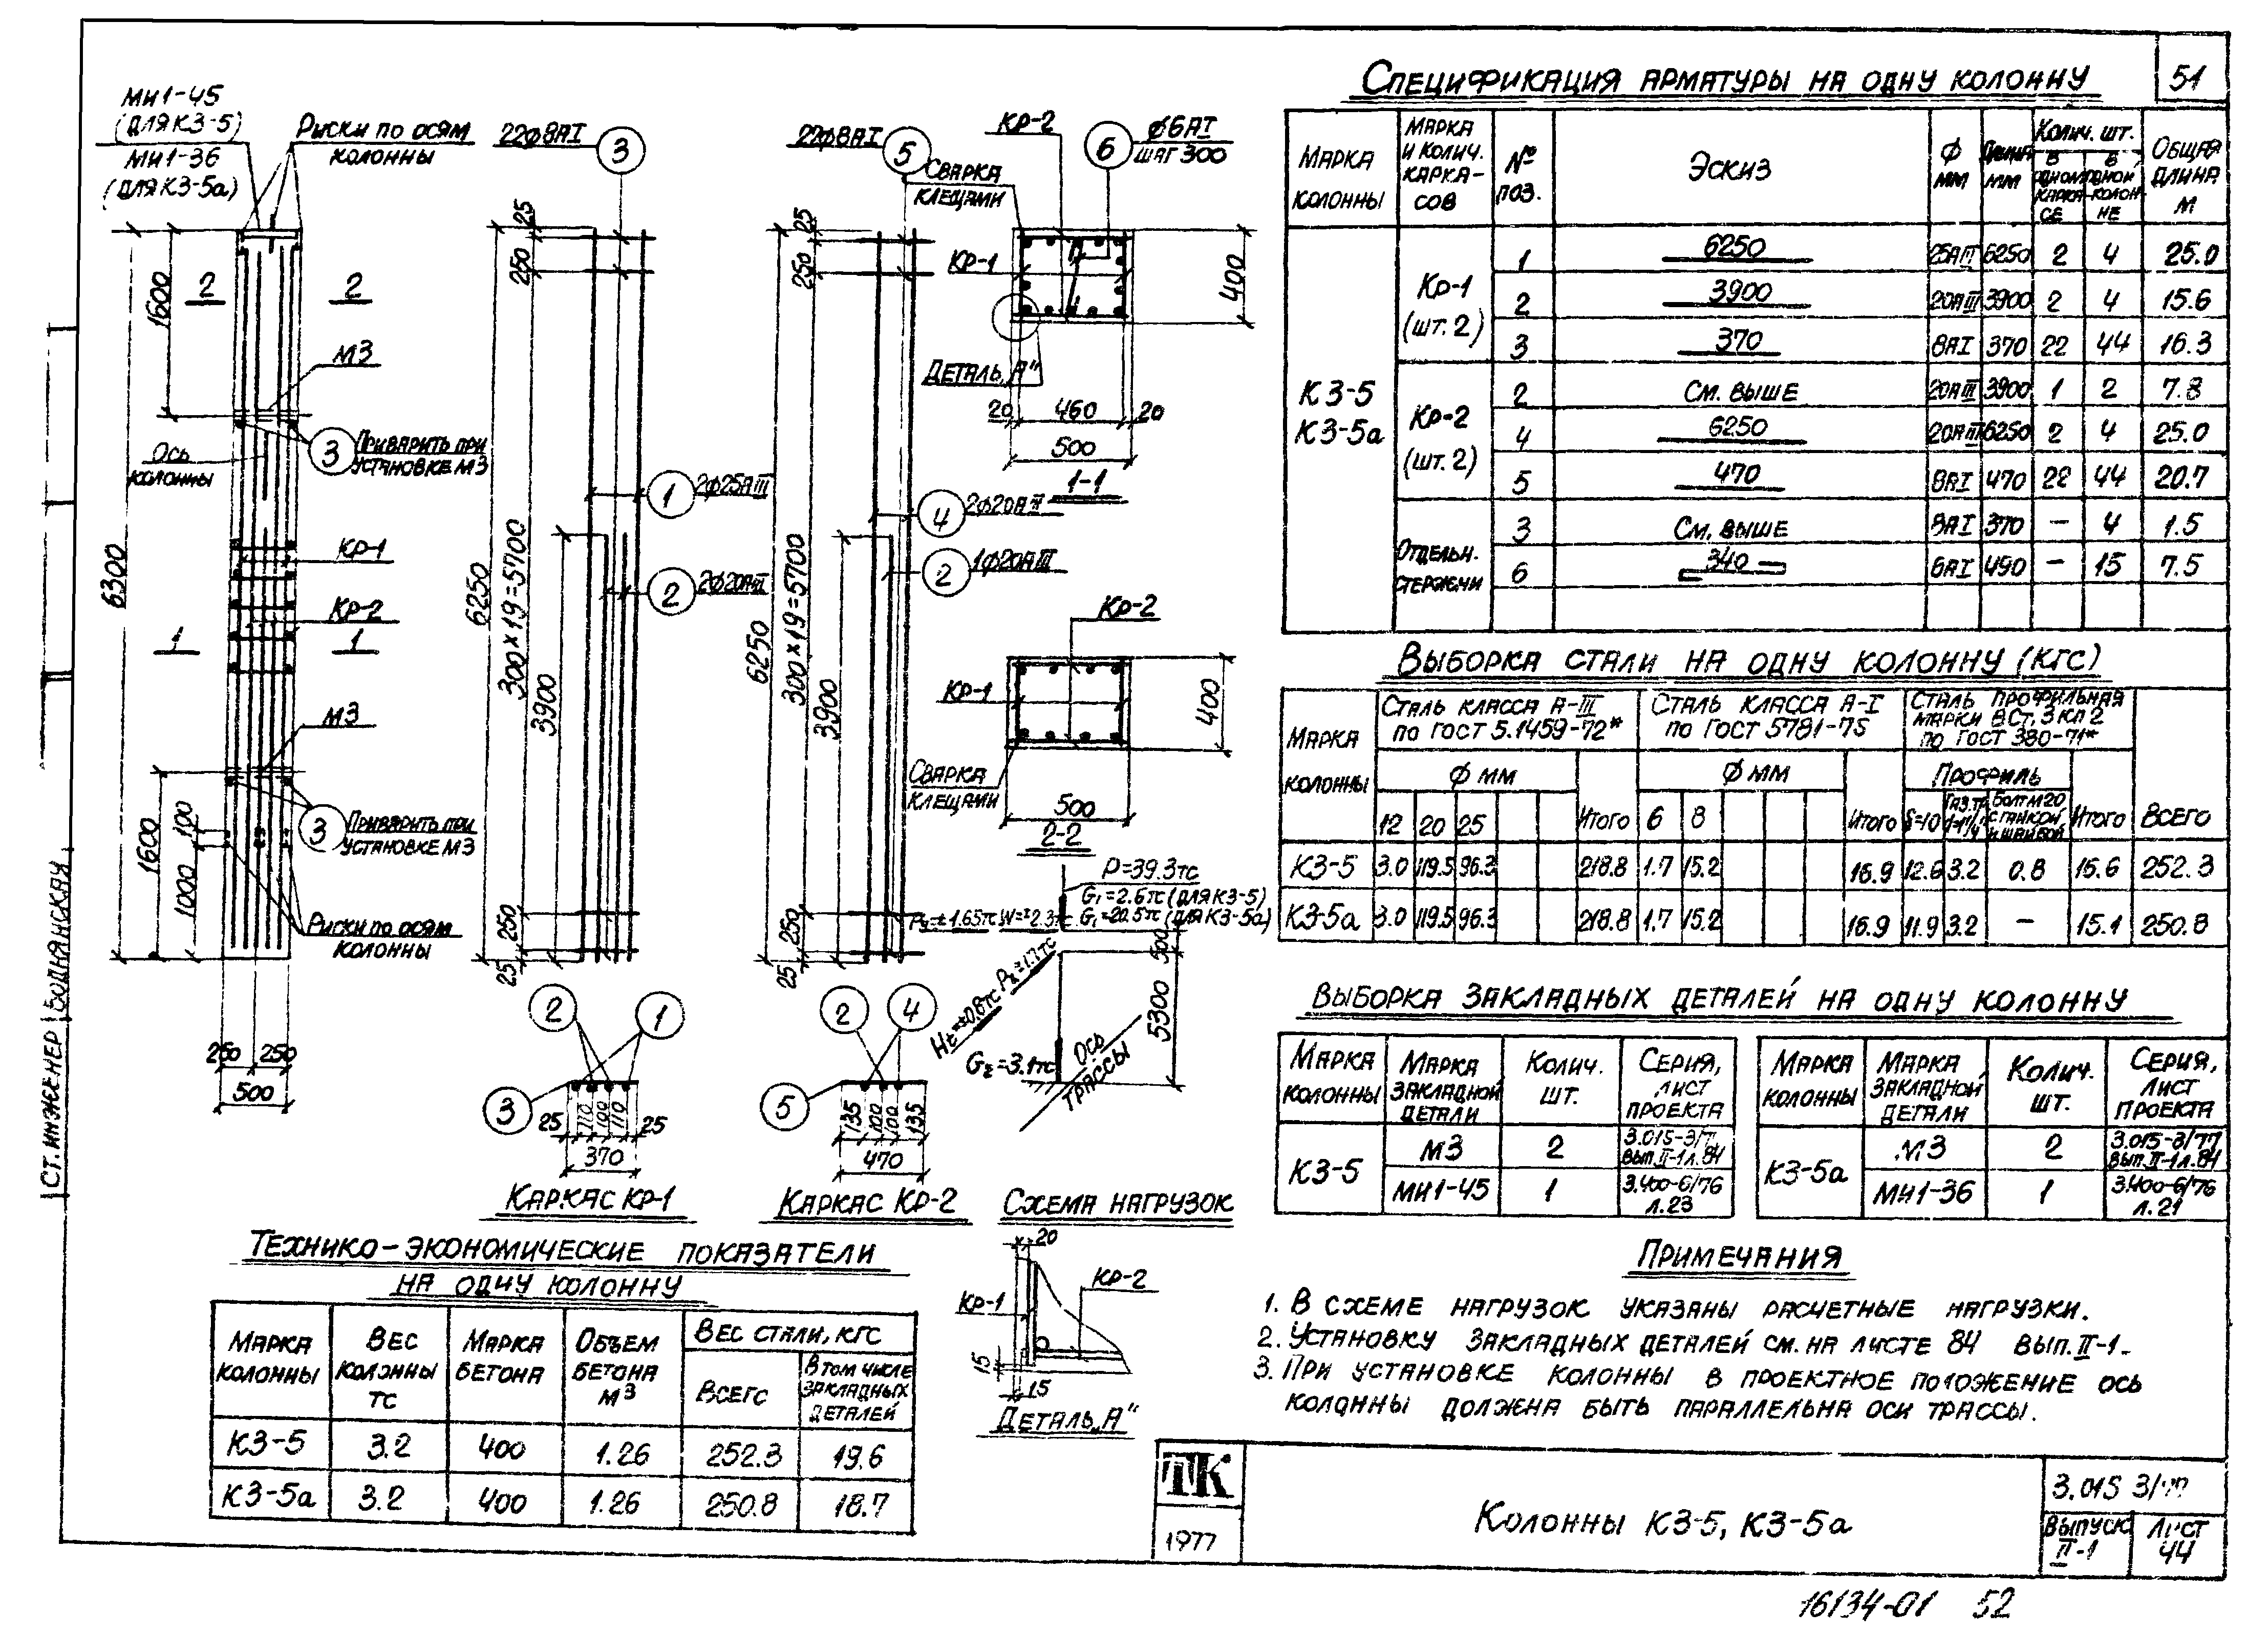 51
Спецификация арматуры на одну колонну
Марка колонны
Марка и колич. каркасов
№ поз.
Эскиз
Ф мм
Длина мм
Колич. шт.
в одном каркасе
в одной колонне
Общая длина м
КЗ-5
КЗ-5а
Кр-1 (шт. 2)
1 6250 25АIII 6250 2 4 25.0
2 3900 20АIII 3900 2 4 15.6
3 370 8АI 370 22 44 16.3
Кр-2 (шт. 2)
2 См. выше 20АIII 3900 1 2 7.8
4 6250 20АIII 6250 2 4 25.0
5 470 8АI 470 22 44 20.7
Отдельн. стержни
3 См. выше 8АI 370 — 4 1.5
6 340 6АI 490 — 15 7.5
Выборка стали на одну колонну (кгс)
Марка колонны
Сталь класса А-III по ГОСТ 5.1459-72*
Сталь класса А-I по ГОСТ 5781-75
Сталь профильная марки ВСт. 3 кп 2 по ГОСТ 380-71*
Всего
Ф мм
Ф мм
Профиль
12 20 25 Итого 6 8 Итого δ=10
Болт М20 с гайкой и шайбой
Итого
КЗ-5 3.0 119.5 96.3 218.8 1.7 15.2 16.9 12.6 3.2 0.8 16.6 252.3
КЗ-5а 3.0 119.5 96.3 218.8 1.7 15.2 16.9 11.9 3.2 — 15.1 250.8
Выборка закладных деталей на одну колонну
Марка колонны
Марка закладной детали
Колич. шт.
Серия, лист проекта
КЗ-5
М3 2 3.015-3/7 вып. II-1 л. 84
МИ1-45 1 3.400-6/76 л. 23
Марка колонны
Марка закладной детали
Колич. шт.
Серия, лист проекта
КЗ-5а
М3 2 3.015-3/77 вып. II-1 л. 84
МИ1-36 1 3.400-6/76 л. 21
Примечания
1. В схеме нагрузок указаны расчетные нагрузки.
2. Установку закладных деталей см. на листе 84 вып. II-1.
3. При установке колонны в проектное положение ось
колонны должна быть параллельна оси трассы.
МИ1-45
(для КЗ-5)
МИ1-36
(для КЗ-5а)
Риски по осям
колонны
2 2
1600
М3
3
Приварить при
установке М3
Ось
колонны
6300
Кр-1
Кр-2
1 1
М3
3
Приварить при
установке М3
1600
100
1000
Риски по осям
колонны
250 250
500
22Ф8АI 3
25
250
6250
300×19=5700
3900
1 2Ф25АIII
2 2Ф20АIII
250
25
2 1
3
25 110 100 110 25
370
Каркас Кр-1
22Ф8АI 5
25
250
6250
300×19=5700
3900
4 2Ф20АIII
2 1Ф20АIII
250
25
2 4
5
135 100 100 135
470
Каркас Кр-2
Кр-2
6 Ф6АI
шаг 300
Сварка
клещами
Кр-1
400
Деталь „А"
20 460 20
500
1-1
Кр-2
Кр-1
400
Сварка
клещами
500
2-2
P=39.3тс
G₁=2.6тс (для КЗ-5)
G₁=20.5тс (для КЗ-5а)
W=±2.3тс
G₂=3.1тс
500
5300
Ось
трассы
Схема нагрузок
20
Кр-2
Кр-1
15
15
Деталь „А"
Технико-экономические показатели
на одну колонну
Марка колонны
Вес колонны тс
Марка бетона
Объем бетона м³
Вес стали, кгс
Всего
В том числе закладных деталей
КЗ-5 3.2 400 1.26 252.3 19.6
КЗ-5а 3.2 400 1.26 250.8 18.7
Ст. инженер Боднянская
ТК
1977
Колонны КЗ-5, КЗ-5а
3.015 3/77
Выпуск II-1
Лист 44
16134-01 52